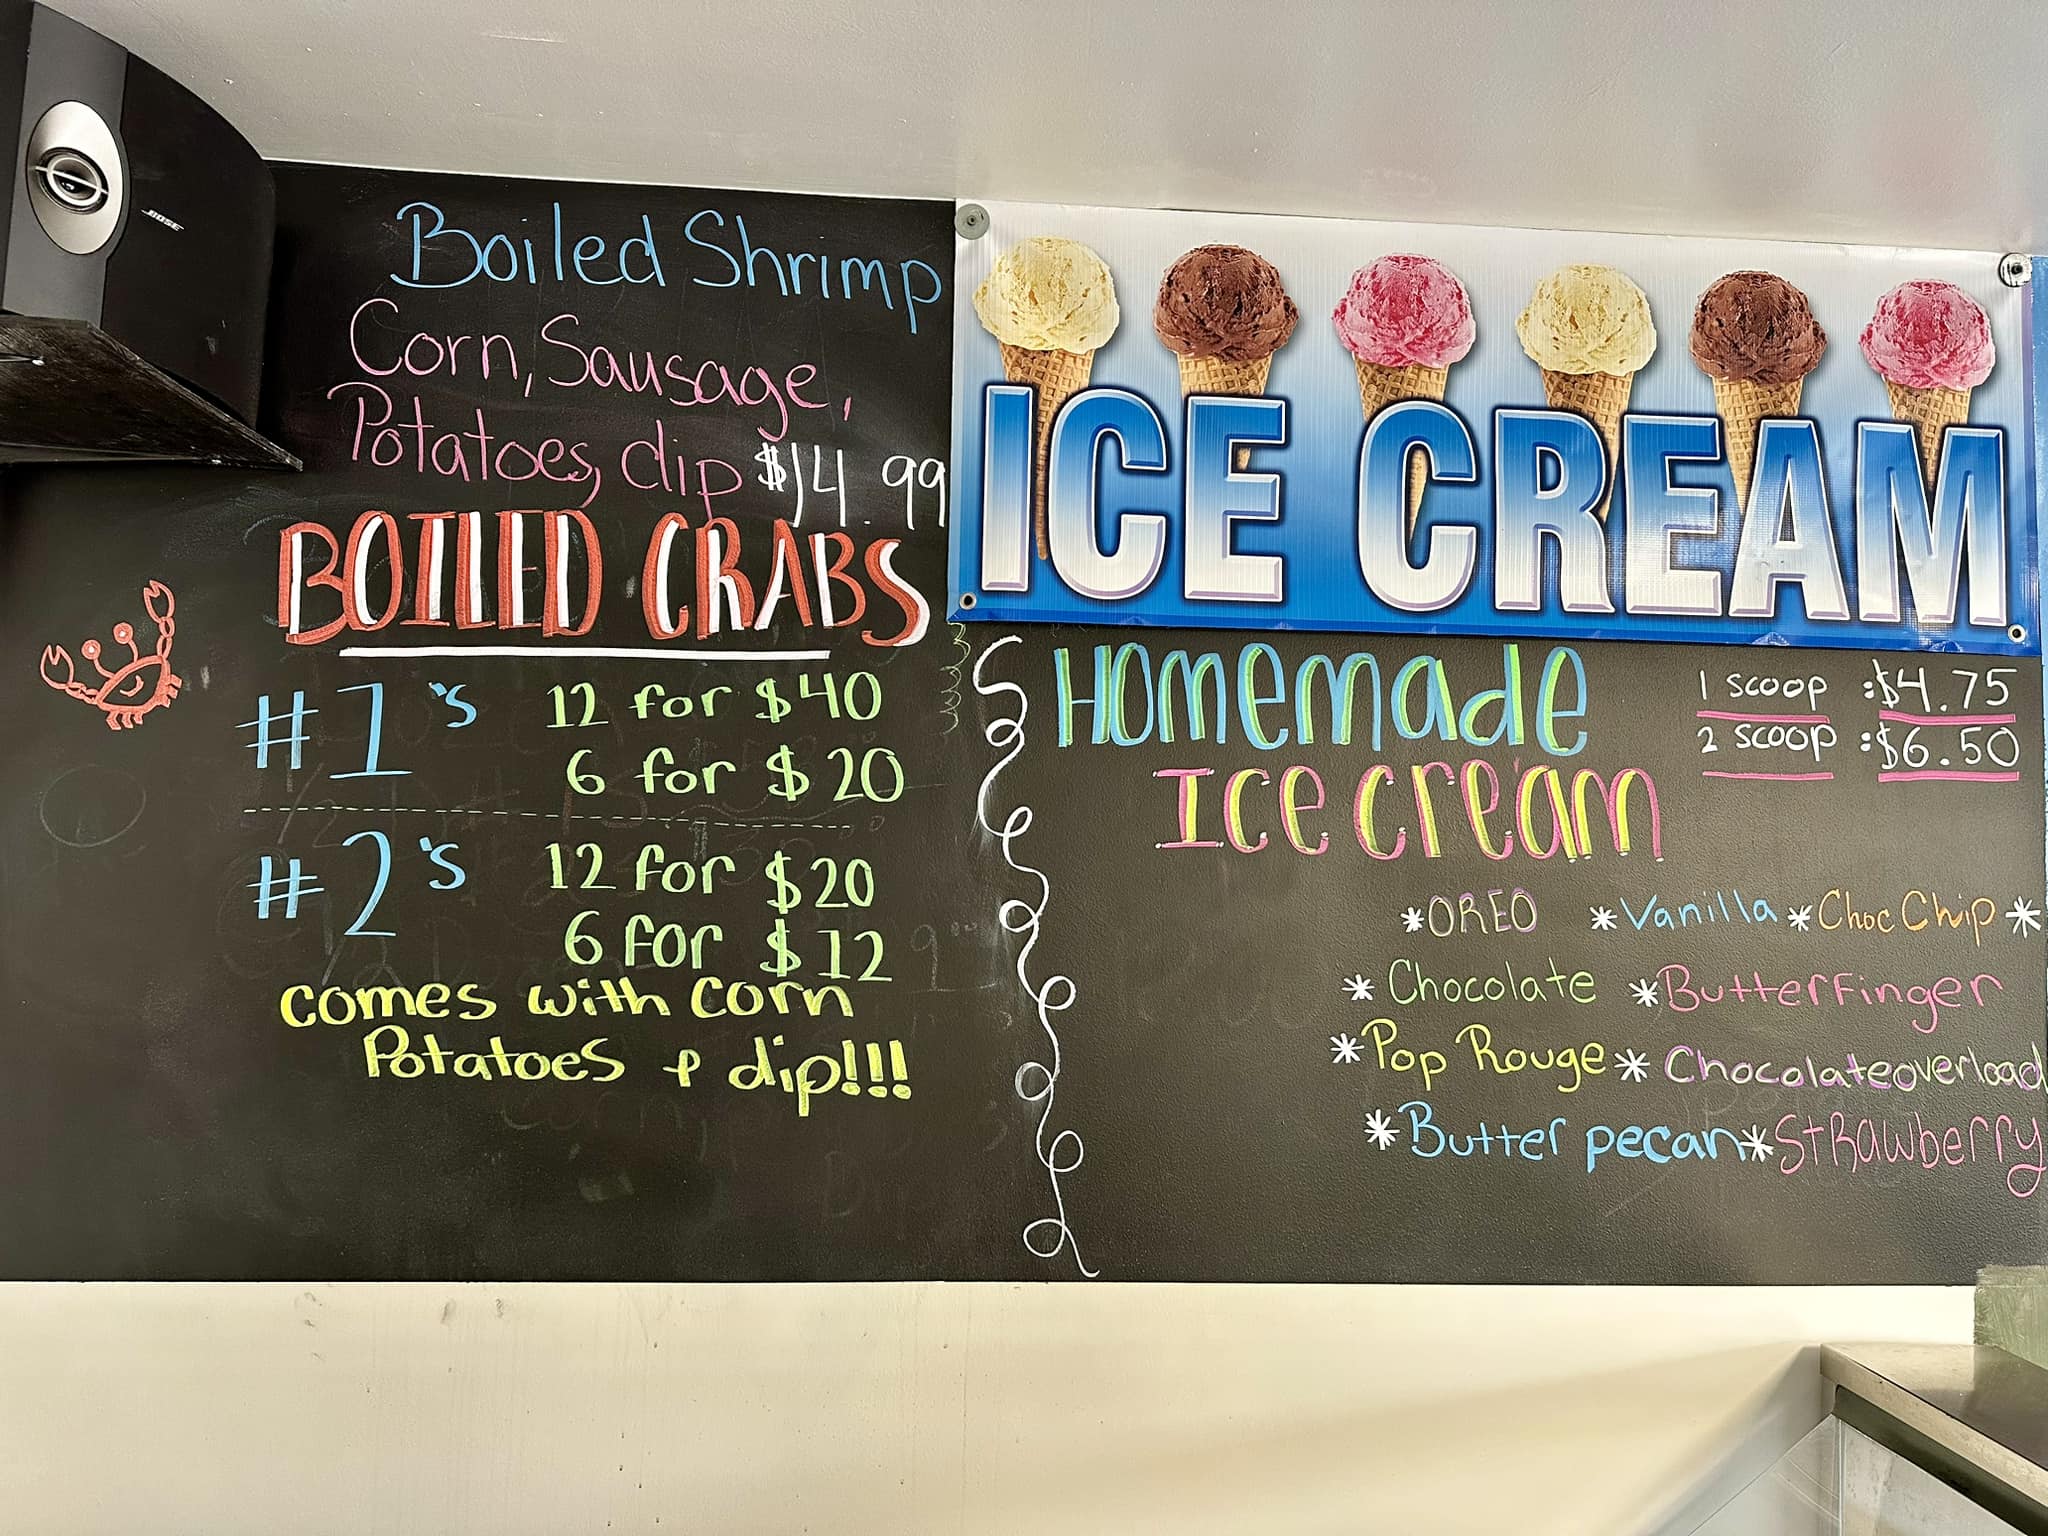 BOSE
Boiled Shrimp
Corn, Sausage,
Potatoes, dip $14.99
BOILED CRABS
#1's 12 for $40
6 for $20
#2's 12 for $20
6 for $12
comes with corn
Potatoes & dip!!!
ICE CREAM
Homemade
Ice cream
1 scoop :$4.75
2 scoop :$6.50
*OREO *Vanilla *Choc Chip *
*Chocolate *Butterfinger
*Pop Rouge * Chocolateoverload
*Butter pecan *Strawberry